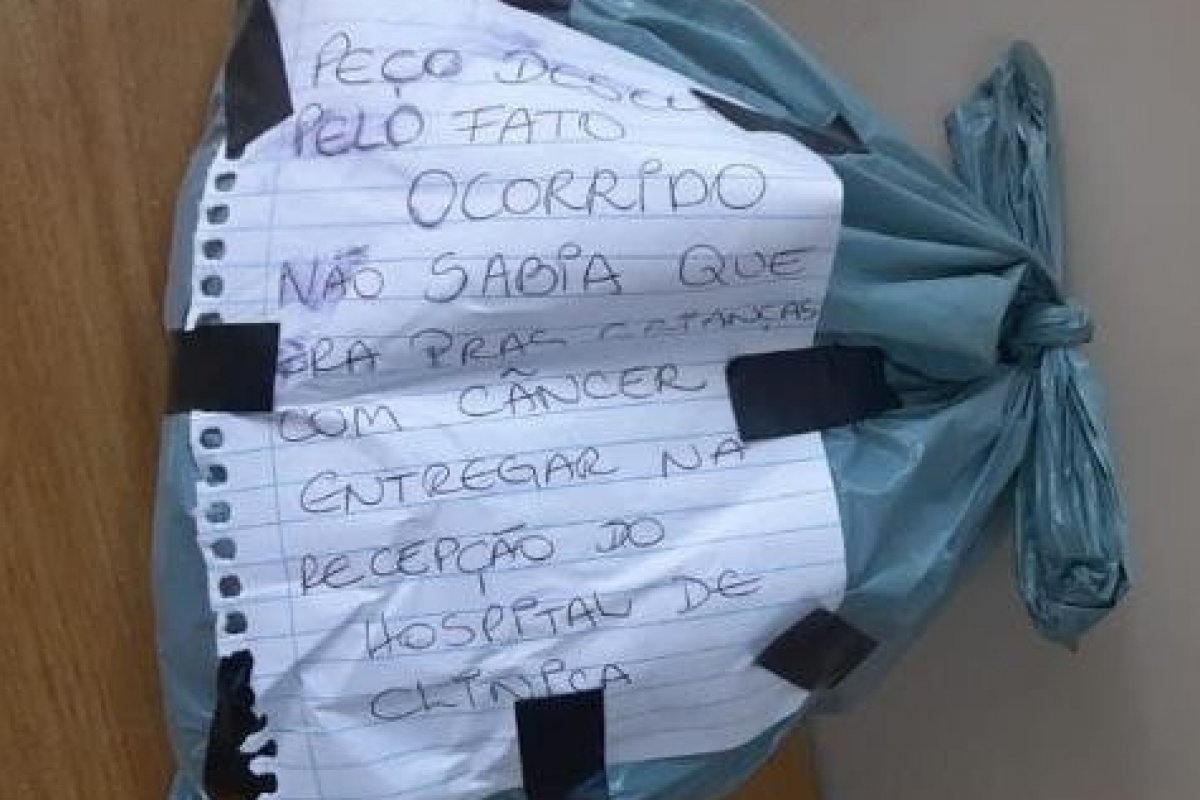 PEÇO DESCU
PELO FATO
OCORRIDO
NÃO SABIA QUE
ERA PRAS CRIANÇAS
COM CÂNCER
ENTREGAR NA
RECEPÇÃO DO
HOSPITAL DE
CLINICA